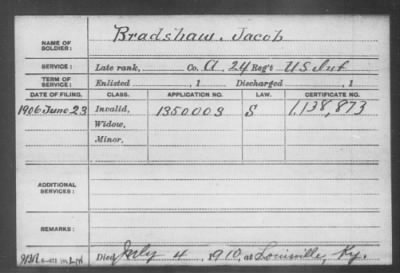 NAME OF SOLDIER: Bradshaw, Jacob
SERVICE: Late rank, Co. A, 24 Reg't U S Inf
TERM OF SERVICE: Enlisted , 1 Discharged , 1
DATE OF FILING. CLASS. APPLICATION NO. LAW. CERTIFICATE NO.
1906 June 23 Invalid, 1350003 S 1,138,873
Widow,
Minor,
ADDITIONAL SERVICES:
REMARKS:
Died July 4, 1910, at Louisville, Ky.